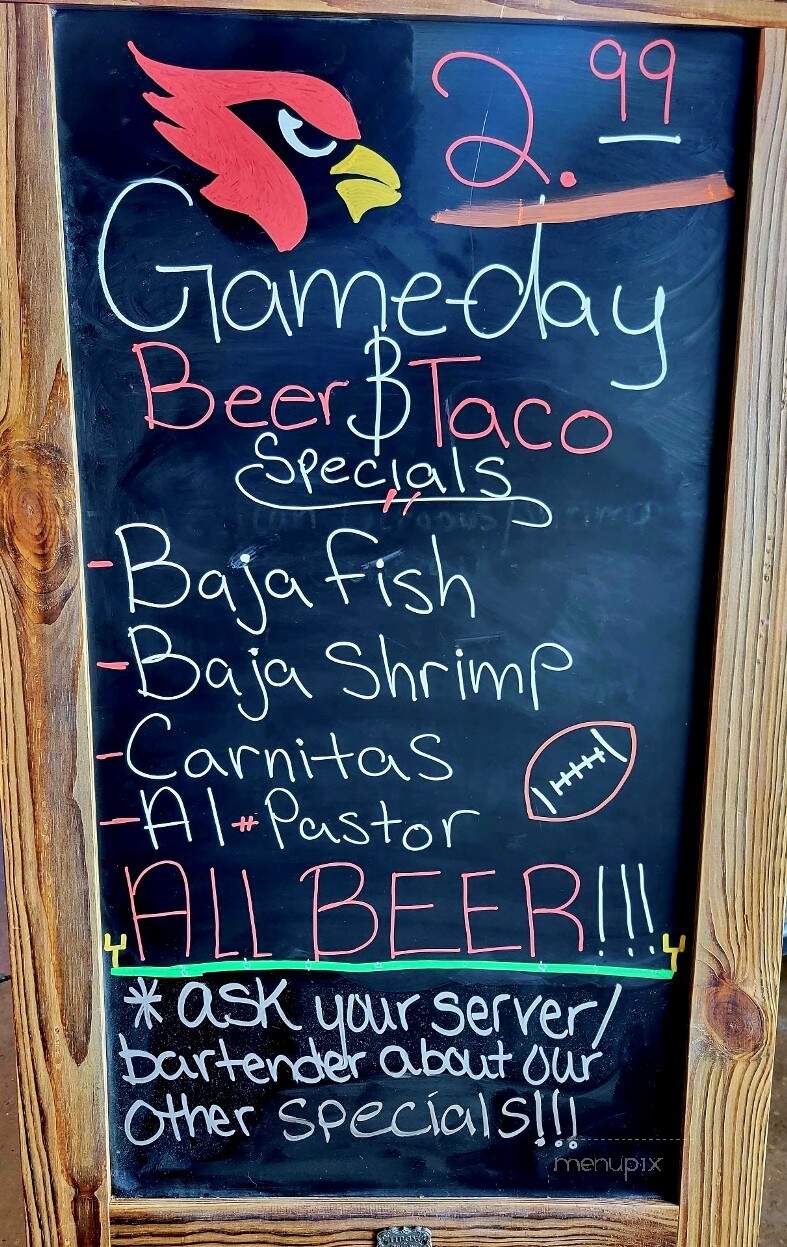 2.99
Game-day
Beer & Taco
Specials
- Baja fish
- Baja Shrimp
- Carnitas
- Al - Pastor
ALL BEER!!!
* ask your server/
bartender about our
other specials!!!
menupix